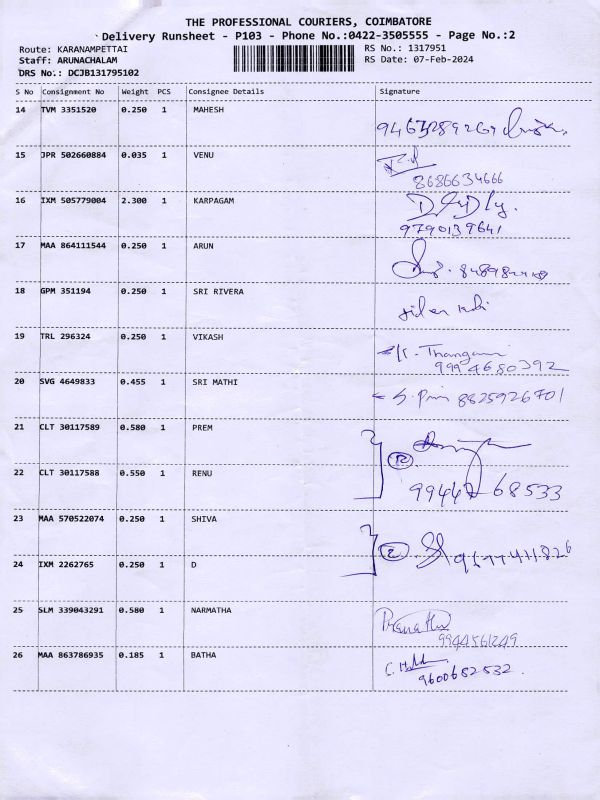 THE PROFESSIONAL COURIERS, COIMBATORE
Delivery Runsheet - P103 - Phone No.:0422-3505555 - Page No.:2
Route: KARANAMPETTAI
Staff: ARUNACHALAM
DRS No.: DCJB131795102
RS No.: 1317951
RS Date: 07-Feb-2024
S No Consignment No Weight PCS Consignee Details Signature
14 TVM 3351520 0.250 1 MAHESH
15 JPR 502660884 0.035 1 VENU
8686634666
16 IXM 505779004 2.300 1 KARPAGAM
9790139641
17 MAA 864111544 0.250 1 ARUN
18 GPM 351194 0.250 1 SRI RIVERA
19 TRL 296324 0.250 1 VIKASH
K. Thangam
9994680392
20 SVG 4649833 0.455 1 SRI MATHI
8825926701
21 CLT 30117589 0.580 1 PREM
22 CLT 30117588 0.550 1 RENU
99442 68533
23 MAA 570522074 0.250 1 SHIVA
24 IXM 2262765 0.250 1 D
25 SLM 339043291 0.580 1 NARMATHA
9944561249
26 MAA 863786935 0.185 1 BATHA
9600652532